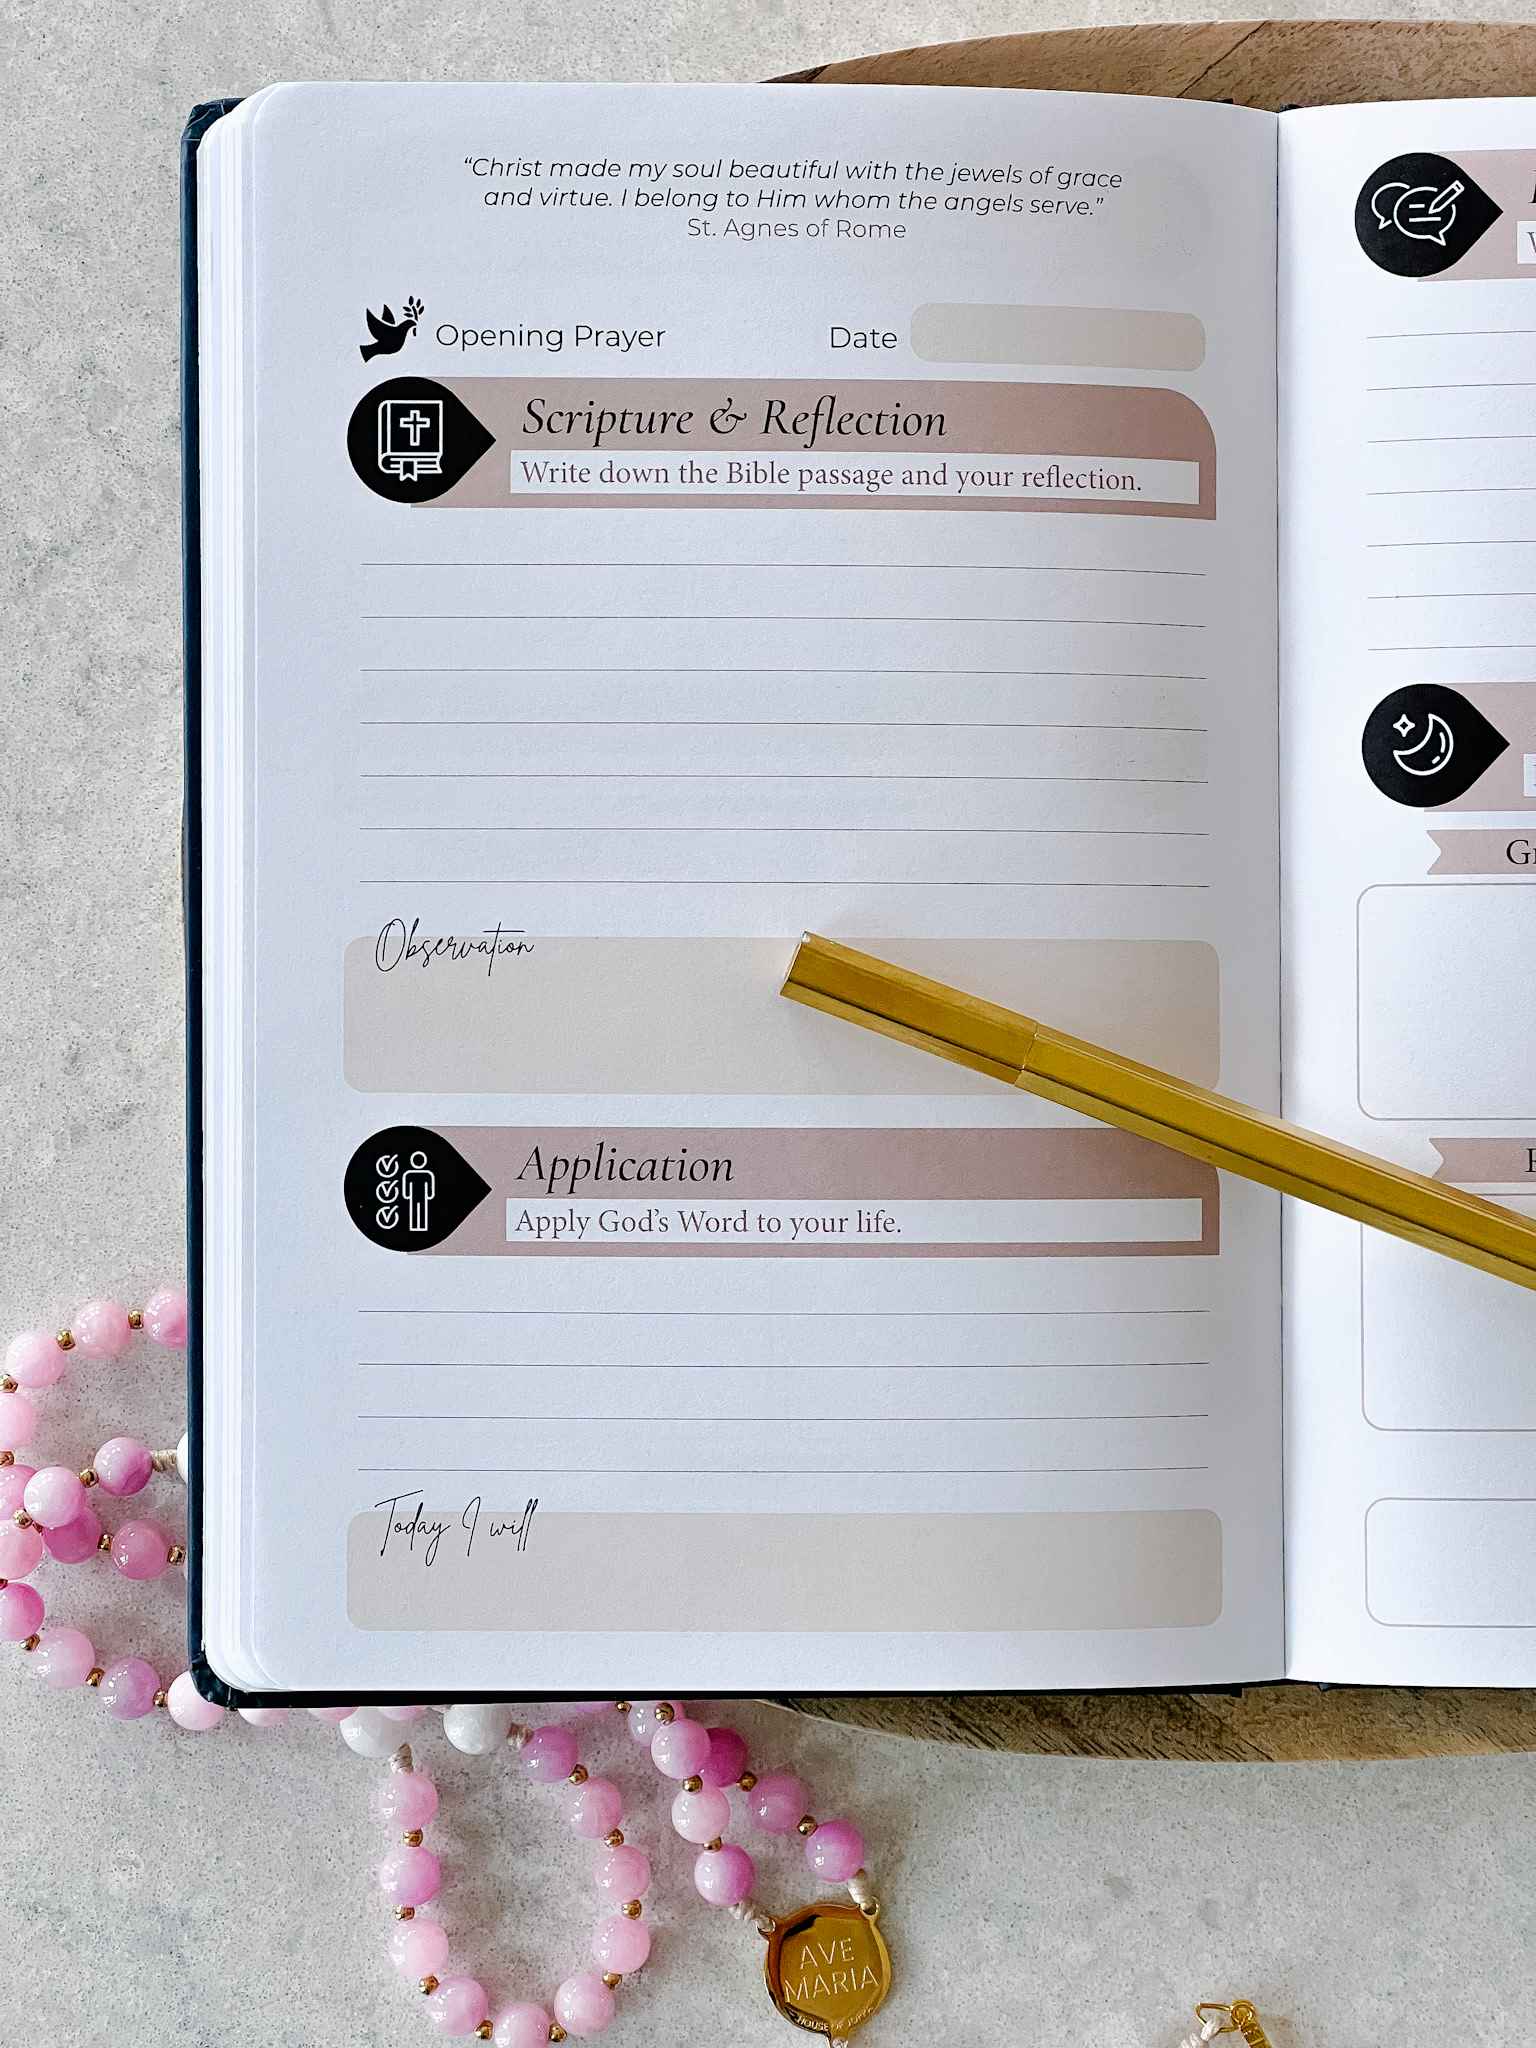 “Christ made my soul beautiful with the jewels of grace
and virtue. I belong to Him whom the angels serve.”
St. Agnes of Rome
Opening Prayer
Date
Scripture & Reflection
Write down the Bible passage and your reflection.
Observation
Application
Apply God’s Word to your life.
Today I will
AVE
MARIA
HOUSE OF